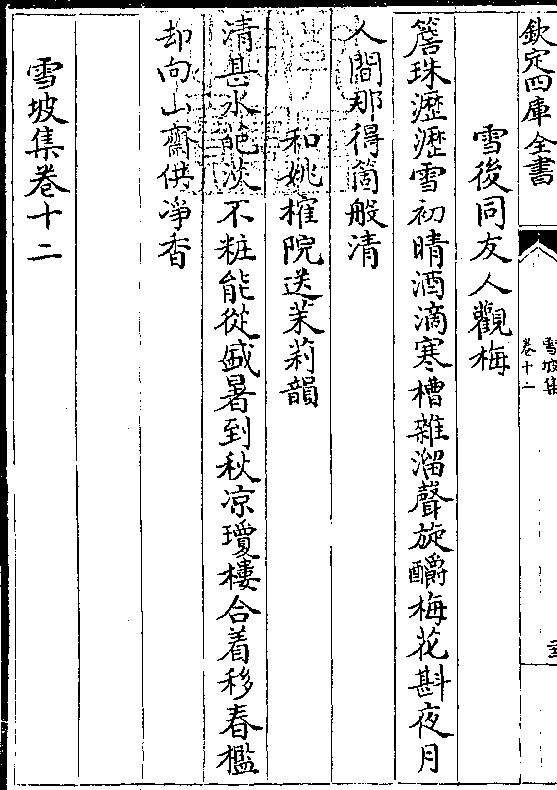 欽定四庫全書
雪坡集
卷十二
雪後同友人觀梅
簷珠瀝瀝雪初晴酒滴寒槽雜溜聲旋釂梅花斟夜月
人間那得箇般清
和姚榷院送茉莉韻
清甚氷葩淡不粧能從盛暑到秋凉瓊樓合着移春檻
却向山齋供淨香
雪坡集卷十二